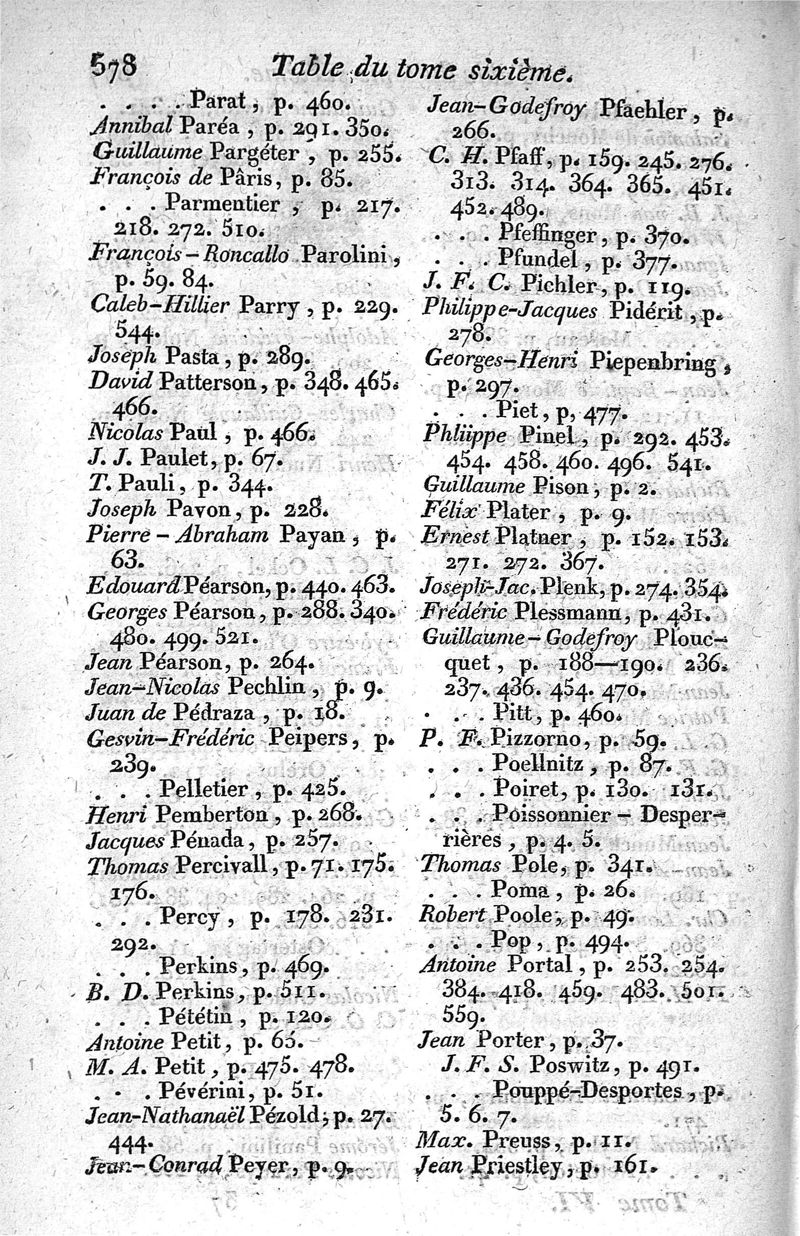 578 Table du tome sixième.
. . . . Parat, p. 460.
Annibal Paréa, p. 291. 350.
Guillaume Pargéter, p. 255.
François de Pâris, p. 85.
. . . Parmentier, p. 217.
218. 272. 510.
François-Roncallo Parolini,
p. 59. 84.
Caleb-Hillier Parry, p. 229.
544.
Joseph Pasta, p. 289.
David Patterson, p. 348. 465.
466.
Nicolas Paul, p. 466.
J. J. Paulet, p. 67.
T. Pauli, p. 344.
Joseph Pavon, p. 228.
Pierre-Abraham Payan, p.
63.
Edouard Péarson, p. 440. 463.
Georges Péarson, p. 288. 340.
480. 499. 521.
Jean Péarson, p. 264.
Jean-Nicolas Pechlin, p. 9.
Juan de Pédraza, p. 18.
Gesvin-Frédéric Peipers, p.
239.
. . . Pelletier, p. 425.
Henri Pemberton, p. 268.
Jacques Pénada, p. 257.
Thomas Percivall, p. 71. 175.
176.
. . . Percy, p. 178. 231.
292.
. . . Perkins, p. 469.
B. D. Perkins, p. 511.
. . . Pététin, p. 120.
Antoine Petit, p. 65.
M. A. Petit, p. 475. 478.
. . . Pévérini, p. 51.
Jean-Nathanaël Pézold, p. 27.
444.
Jean-Conrad Peyer, p. 9.
Jean-Godefroy Pfaehler, p.
266.
C. H. Pfaff, p. 159. 245. 276.
313. 314. 364. 365. 451.
452. 489.
. . . Pfeffinger, p. 370.
. . . Pfundel, p. 377.
J. F. C. Pichler, p. 119.
Philippe-Jacques Pidérit, p.
278.
Georges-Henri Piepenbring,
p. 297.
. . . Piet, p, 477.
Phliippe Pinel, p. 292. 453.
454. 458. 460. 496. 541.
Guillaume Pison, p. 2.
Félix Plater, p. 9.
Ernest Platner, p. 152. 153.
271. 272. 367.
Joseph-Jac. Plenk, p. 274. 354.
Frédéric Plessmann, p. 431.
Guillaume-Godefroy Plouc-
quet, p. 188—190. 236.
237. 436. 454. 470.
. . . Pitt, p. 460.
P. F. Pizzorno, p. 59.
. . . Poellnitz, p. 87.
. . . Poiret, p. 130. 131.
. . . Poissonnier-Desper-
rières, p. 4. 5.
Thomas Pole, p. 341.
. . . Poma, p. 26.
Robert Poole, p. 49.
. . . Pop, p. 494.
Antoine Portal, p. 253. 254.
384. 418. 459. 483. 501.
559.
Jean Porter, p. 37.
J. F. S. Poswitz, p. 491.
. . . Pouppé-Desportes, p.
5. 6. 7.
Max. Preuss, p. 11.
Jean Priestley, p. 161.